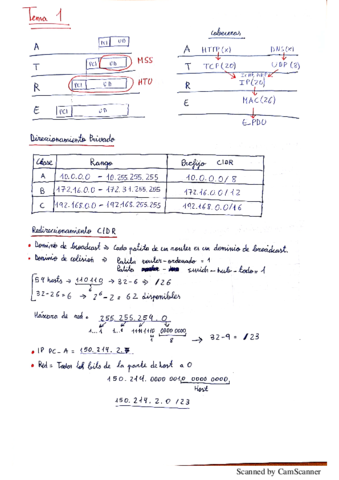 Tema 1
cabeceras
A PCI UD
T PCI UD MSS
R PCI UD MTU
E PCI UD
A HTTP(x) DNS(x)
T TCP(20) UDP(8)
R IP(20)
E MAC(26)
E_PDU
Direccionamiento Privado
Clase Rango Prefijo CIDR
A 10.0.0.0 - 10.255.255.255 10.0.0.0/8
B 172.16.0.0 - 172.31.255.255 172.16.0.0/12
C 192.168.0.0 - 192.168.255.255 192.168.0.0/16
Redireccionamiento CIDR
• Dominio de broadcast → Cada patita de un router es un dominio de broadcast.
• Dominio de colisión → Patita router-ordenador = 1
Patita switch-hub-todo = 1
59 hosts → 110110 → 32-6 → /26
32-26=6 → 2⁶-2 = 62 disponibles
Máscara de red = 255.255.254.0
1...1 1...1 1111110 00000000 → 32-9 = /23
1 8
• IP PC_A = 150.214.2.
• Red = Todos los bits de la parte de host a 0
150.214.0000 0010 0000 0000
Host
150.214.2.0 /23
Scanned by CamScanner